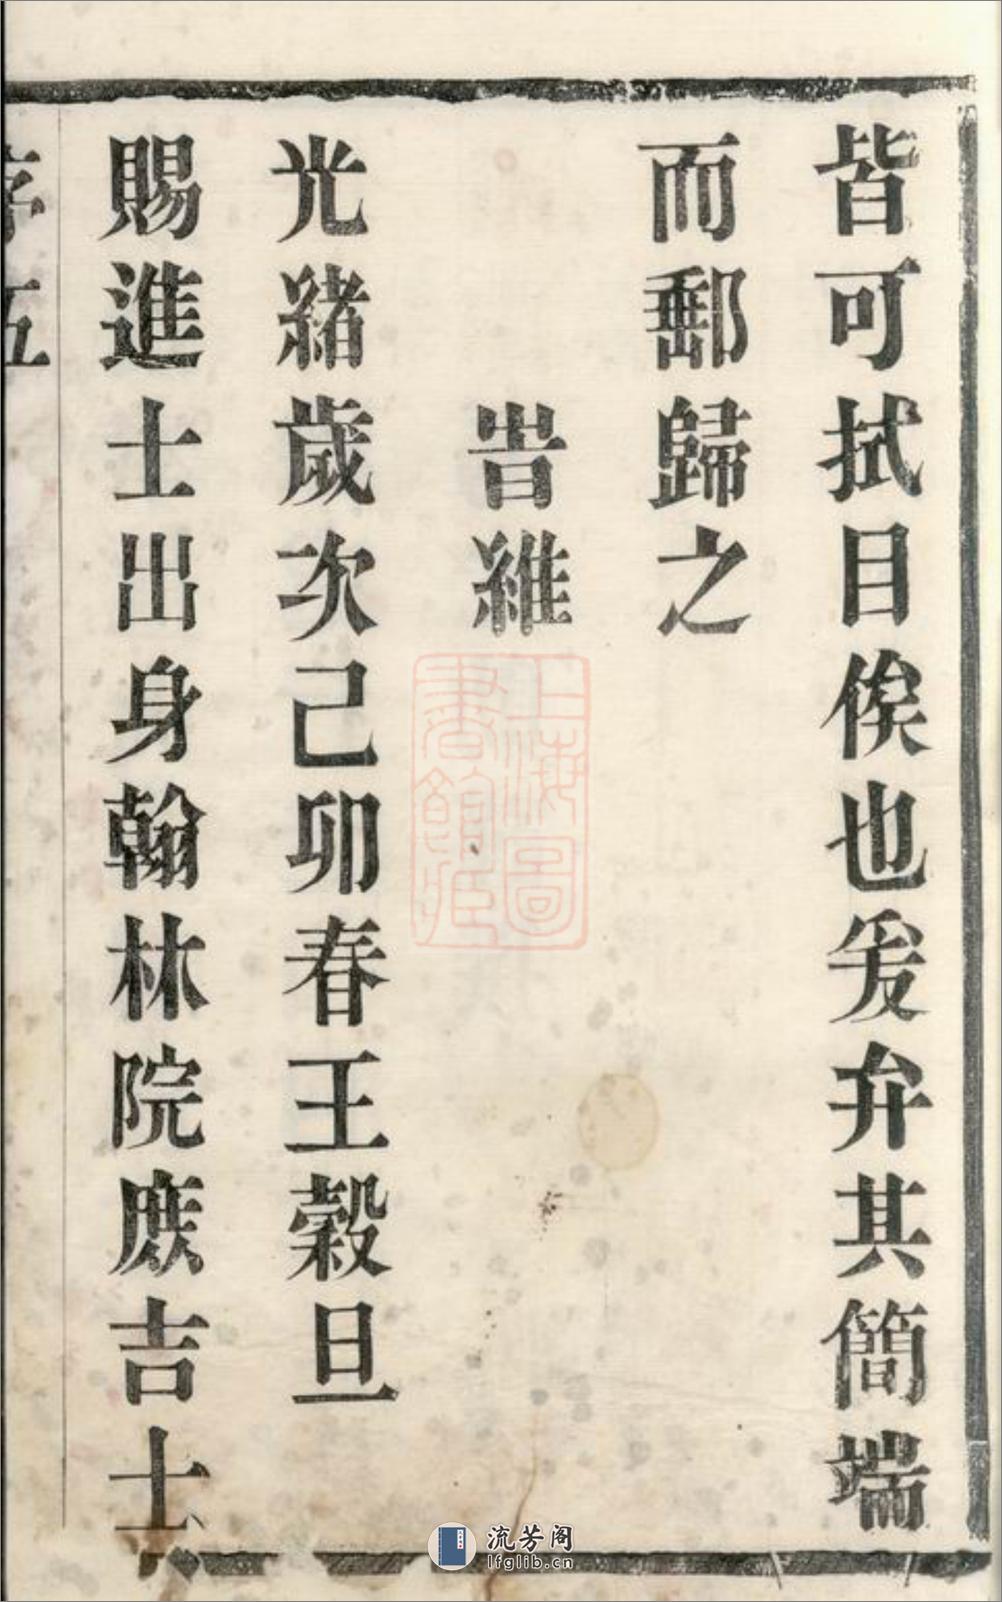 皆可拭目俟也爰弁其簡端
而郵歸之
旹維
光緒歲次己卯春王穀旦
賜進士出身翰林院庶吉士
序五
上海圖
書館藏
流芳阁
lfglib.cn